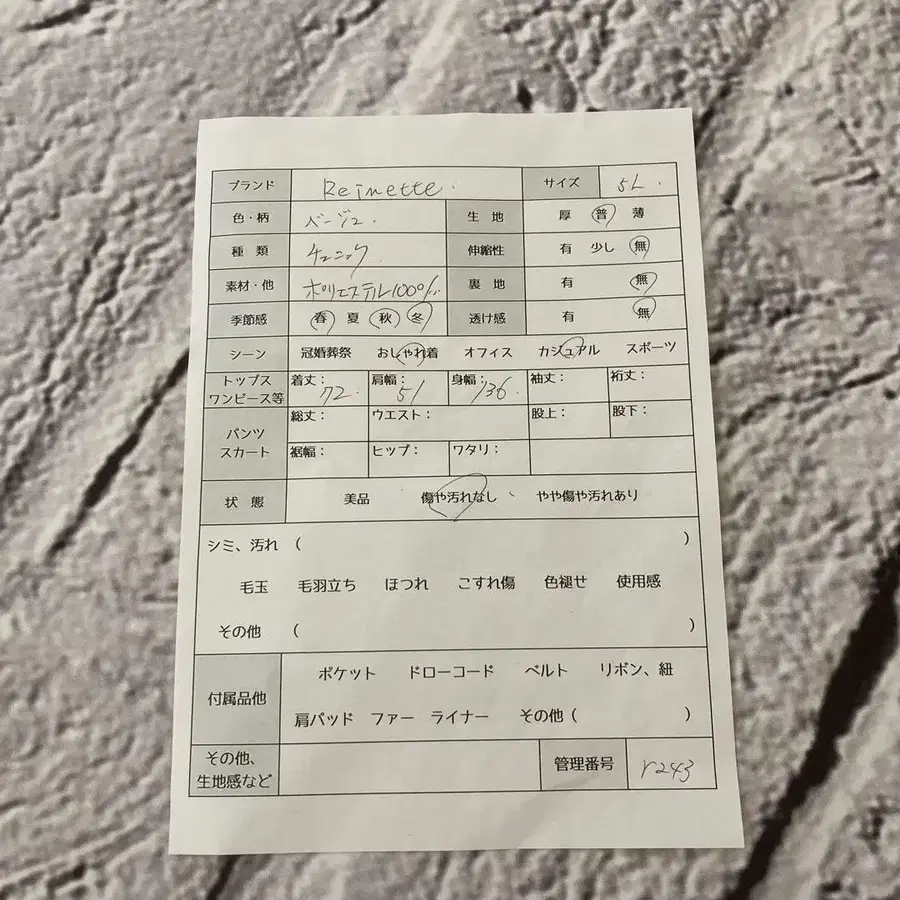 ブランド Reinette. サイズ 5L.
色・柄 ベージュ. 生 地 厚 普 薄
種 類 チュニック 伸縮性 有 少し 無
素材・他 ポリエステル100% 裏 地 有 無
季節感 春 夏 秋 冬 透け感 有 無
シーン 冠婚葬祭 おしゃれ着 オフィス カジュアル スポーツ
トップス ワンピース等 着丈: 72. 肩幅: 51 身幅: 136. 袖丈: 裄丈:
パンツ スカート 総丈: ウエスト: 股上: 股下:
裾幅: ヒップ: ワタリ:
状 態 美品 傷や汚れなし 、 やや傷や汚れあり
シミ、汚れ ( )
毛玉 毛羽立ち ほつれ こすれ傷 色褪せ 使用感
その他 ( )
付属品他 ポケット ドローコード ベルト リボン、紐
肩パッド ファー ライナー その他 ( )
その他、 生地感など 管理番号 r243